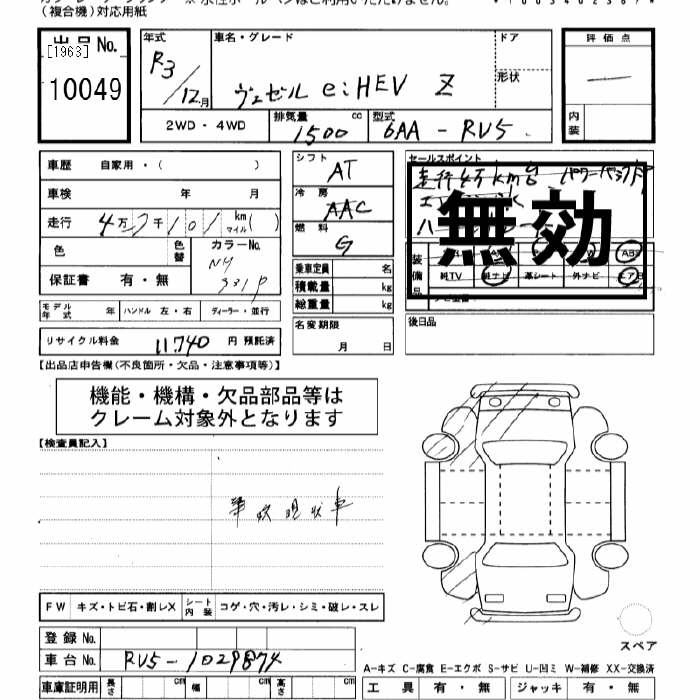 （複合機）対応用紙
出品 No.
[1963]
10049
年式
R3/12月
車名・グレード
ヴェゼル e:HEV Z
ドア
形状
評価点
―
内装
2WD・4WD
排気量 1500 cc
型式 6AA - RV5
車歴 自家用・（ ）
車検 年 月
走行 4万 7千 101 km マイル( )
色 色替 カラーNo.
保証書 有・無
NH
331P
モデル年式 年 ハンドル 左・右 ディーラー・並行
リサイクル料金 11,740 円 預託済
シフト AT
冷房 AAC
燃料 G
乗車定員 名
積載量 kg
総重量 kg
名変期限
月 日
セールスポイント
走行4万km台
無効
装備品
AB
純TV 純ナビ 革シート 外ナビ エアB
後日品
【出品店申告欄(不良箇所・欠品・注意事項等)】
機能・機構・欠品部品等は
クレーム対象外となります
【検査員記入】
事故現状車
FW キズ・トビ石・割レX シート内装 コゲ・穴・汚レ・シミ・破レ・スレ
登録 No.
車台 No. RV5-1029874
車庫証明用 長さ cm 幅 cm 高さ cm
スペア
A-キズ C-腐食 E-エクボ S-サビ U-凹ミ W-補修 XX-交換済
工具 有・無 ジャッキ 有・無